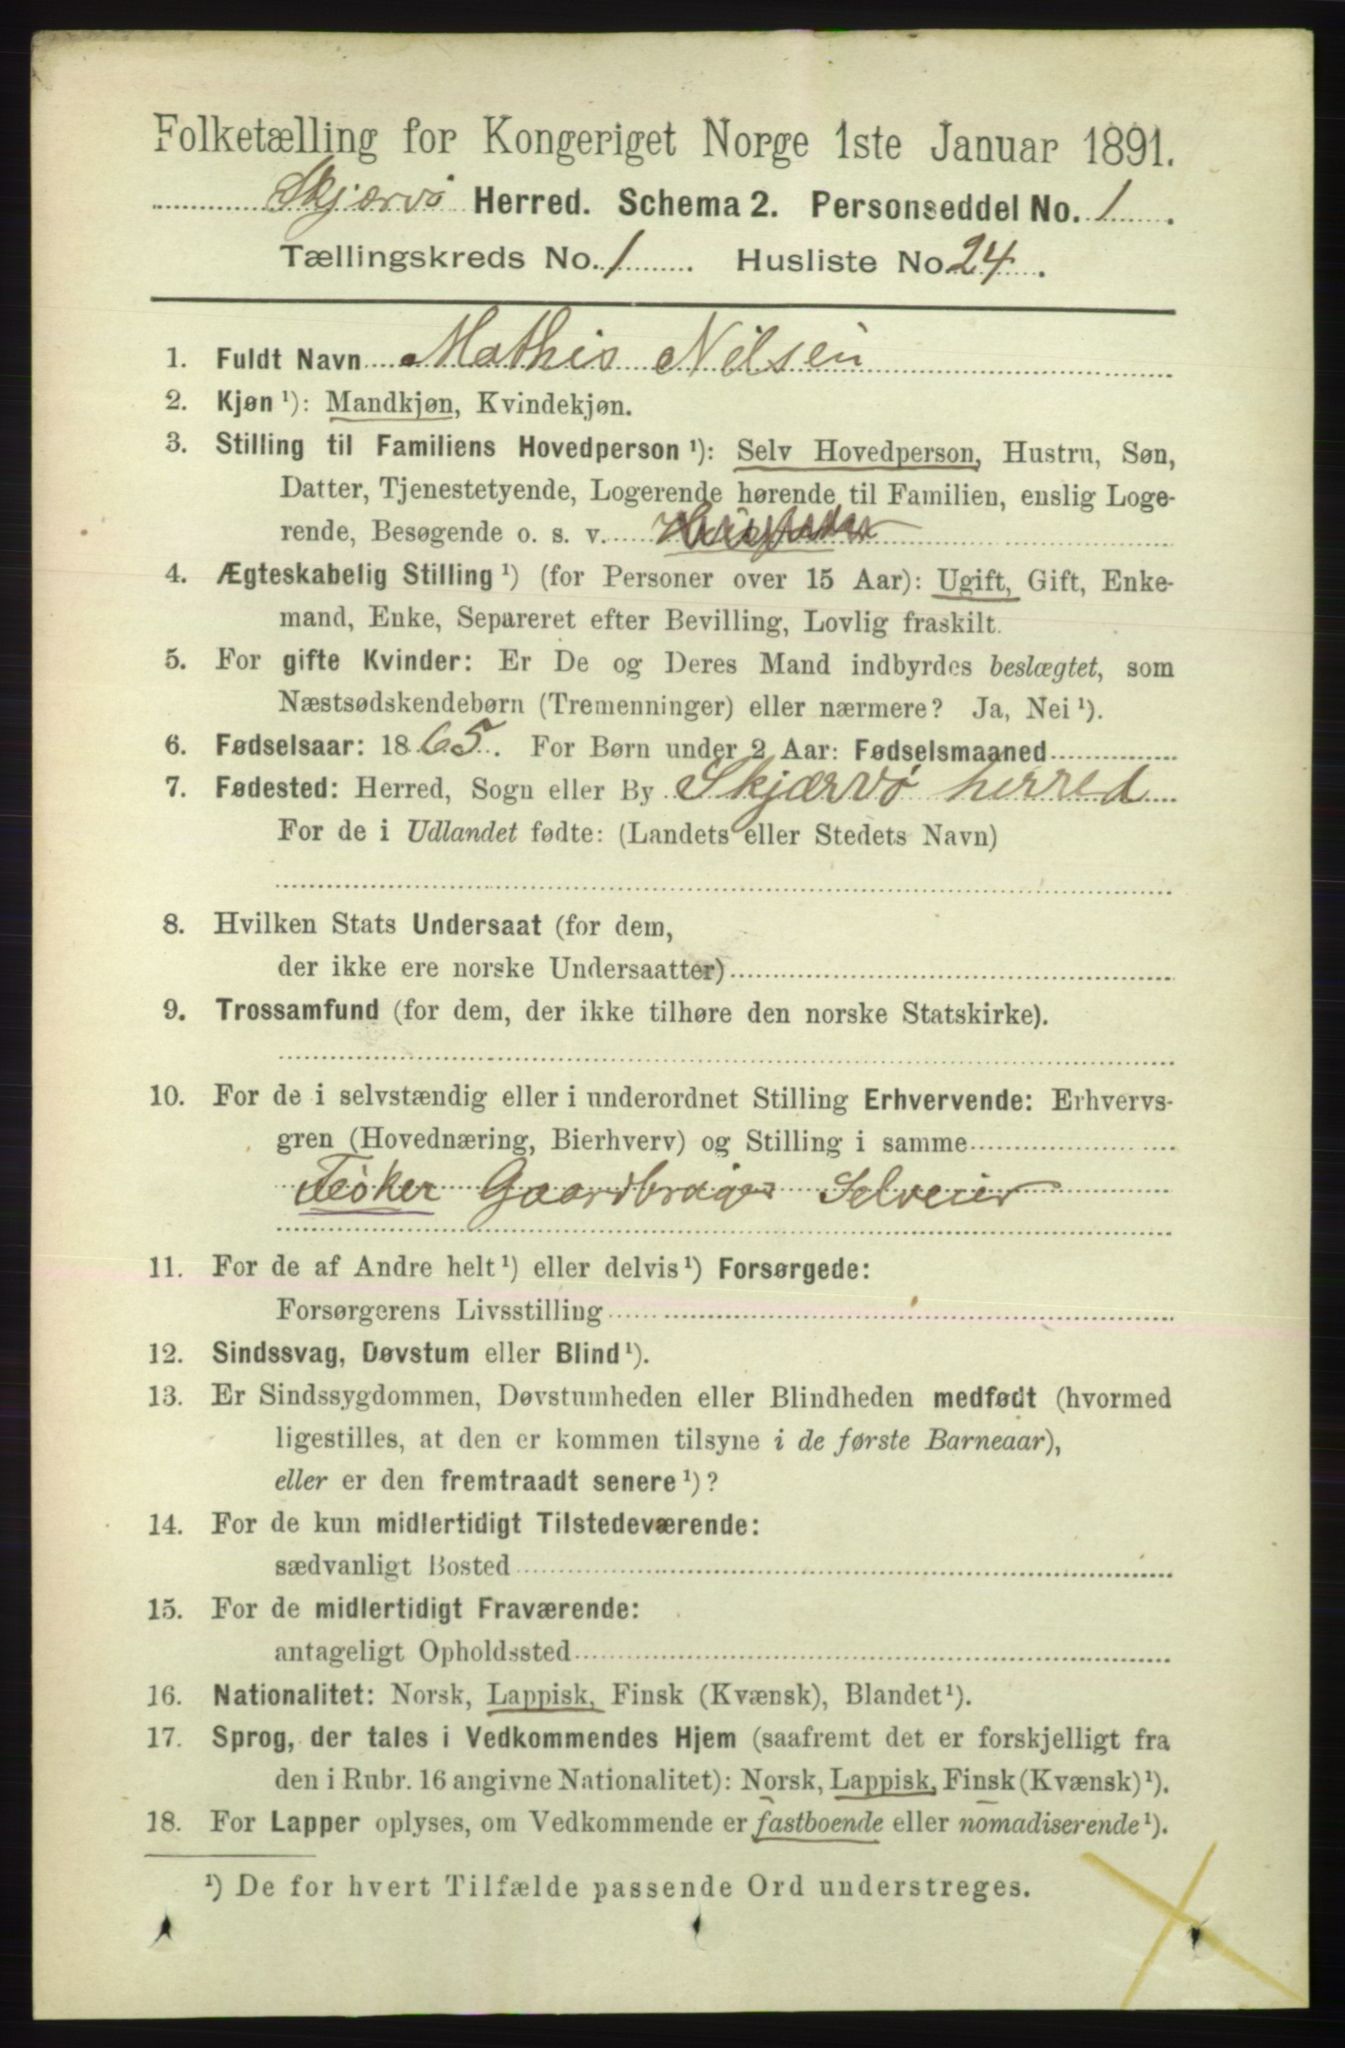 Folketælling for Kongeriget Norge 1ste Januar 1891.
Skjærvö Herred. Schema 2. Personseddel No. 1.
Tællingskreds No. 1. Husliste No. 24.
1. Fuldt Navn Mathis Nilsen
2. Kjøn ¹): Mandkjøn, Kvindekjøn.
3. Stilling til Familiens Hovedperson ¹): Selv Hovedperson, Hustru, Søn,
Datter, Tjenestetyende, Logerende hørende til Familien, enslig Loge-
rende, Besøgende o. s. v.
4. Ægteskabelig Stilling ¹) (for Personer over 15 Aar): Ugift, Gift, Enke-
mand, Enke, Separeret efter Bevilling, Lovlig fraskilt.
5. For gifte Kvinder: Er De og Deres Mand indbyrdes beslægtet, som
Næstsødskendebørn (Tremenninger) eller nærmere? Ja, Nei ¹).
6. Fødselsaar: 1865. For Børn under 2 Aar: Fødselsmaaned
7. Fødested: Herred, Sogn eller By Skjærvö herred
For de i Udlandet fødte: (Landets eller Stedets Navn)
8. Hvilken Stats Undersaat (for dem,
der ikke ere norske Undersaatter)
9. Trossamfund (for dem, der ikke tilhøre den norske Statskirke).
10. For de i selvstændig eller i underordnet Stilling Erhvervende: Erhvervs-
gren (Hovednæring, Bierhverv) og Stilling i samme
Gaardbruger Selveier
11. For de af Andre helt ¹) eller delvis ¹) Forsørgede:
Forsørgerens Livsstilling
12. Sindssvag, Døvstum eller Blind ¹).
13. Er Sindssygdommen, Døvstumheden eller Blindheden medfødt (hvormed
ligestilles, at den er kommen tilsyne i de første Barneaar),
eller er den fremtraadt senere ¹)?
14. For de kun midlertidigt Tilstedeværende:
sædvanligt Bosted
15. For de midlertidigt Fraværende:
antageligt Opholdssted
16. Nationalitet: Norsk, Lappisk, Finsk (Kvænsk), Blandet ¹).
17. Sprog, der tales i Vedkommendes Hjem (saafremt det er forskjelligt fra
den i Rubr. 16 angivne Nationalitet): Norsk, Lappisk, Finsk (Kvænsk) ¹).
18. For Lapper oplyses, om Vedkommende er fastboende eller nomadiserende ¹).
¹) De for hvert Tilfælde passende Ord understreges.